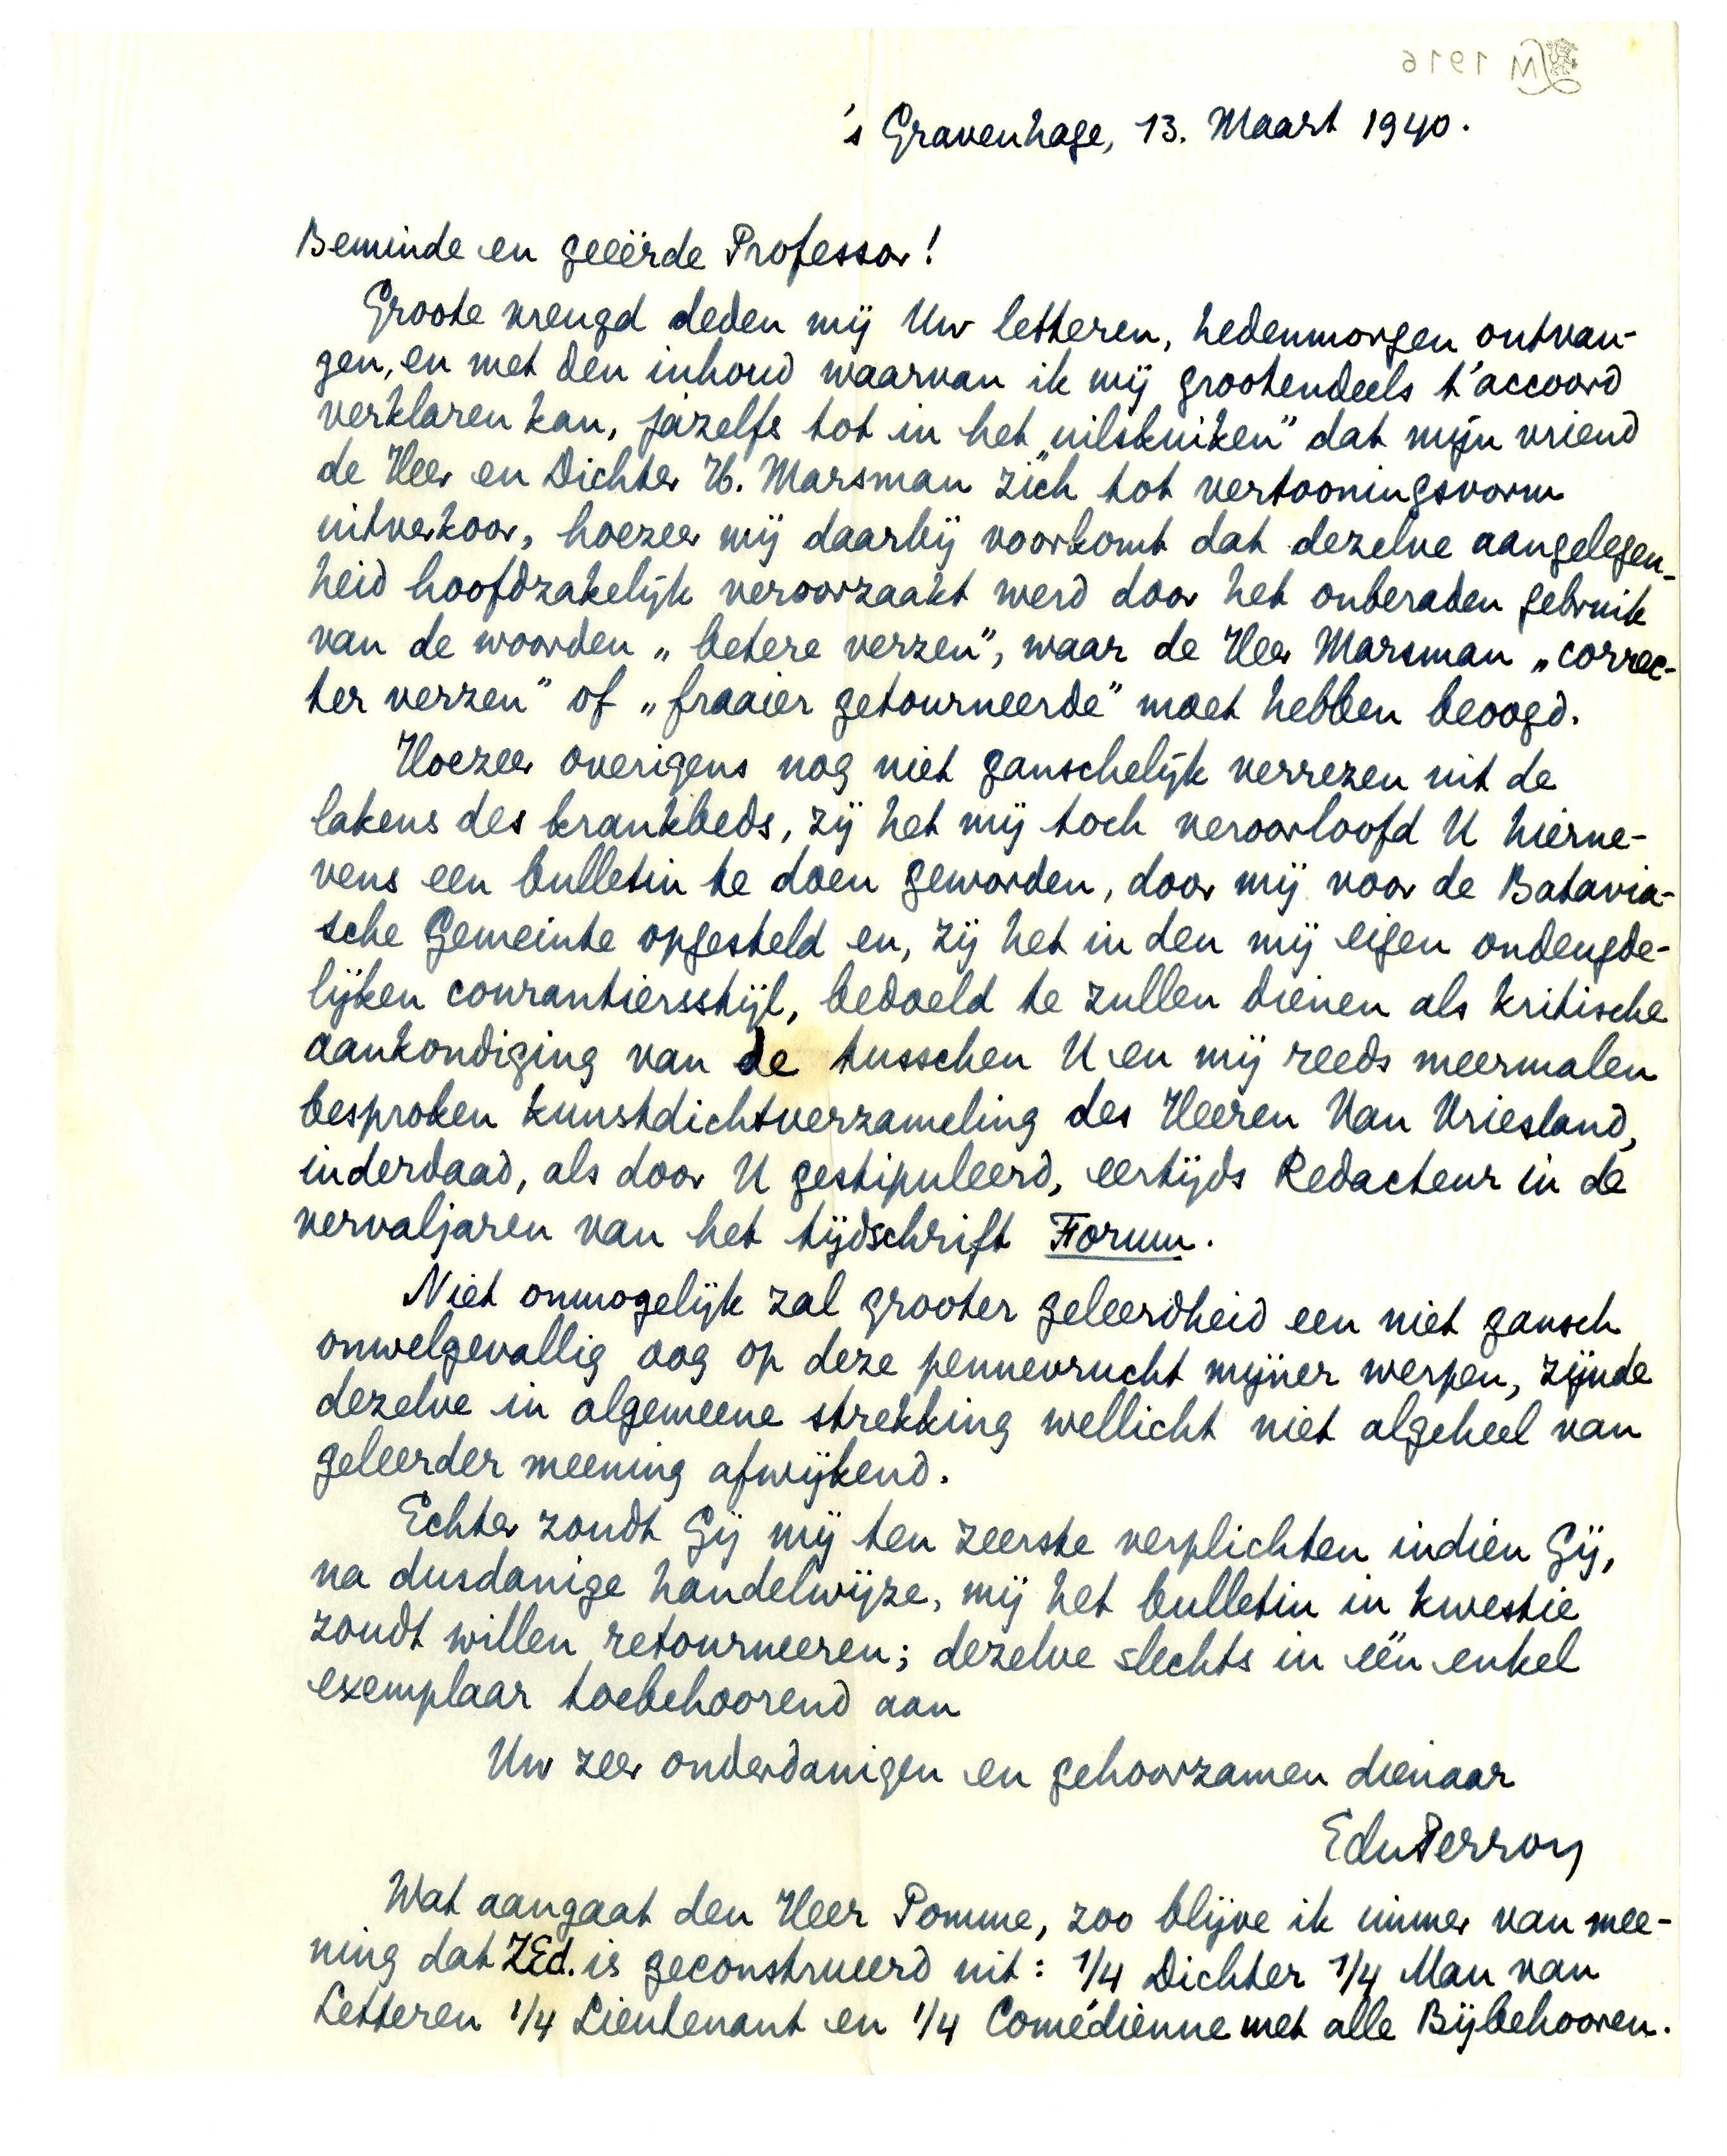 LM 1916
's Gravenhage, 13. Maart 1940.
Beminde en geëerde Professor!
Groote vreugd deden mij Uw letteren, hedenmorgen ontvan-
gen, en met den inhoud waarvan ik mij grootendeels t'accoord
verklaren kan, jazelfs tot in het „uilskuiken" dat mijn vriend
de Heer en Dichter H. Marsman zich tot vertooningsvorm
uitverkoor, hoezeer mij daarbij voorkomt dat dezelve aangelegen-
heid hoofdzakelijk veroorzaakt werd door het onberaden gebruik
van de woorden „betere verzen", waar de Heer Marsman „correc-
ter verzen" of „fraaier getourneerde" moet hebben beoogd.
Hoezeer overigens nog niet ganschelijk verrezen uit de
lakens des krankbeds, zij het mij toch veroorloofd U hierne-
vens een bulletin te doen geworden, door mij voor de Batavia-
sche Gemeinte opgesteld en, zij het in den mij eigen ondeugde-
lijken courantiersstijl, bedoeld te zullen dienen als kritische
aankondiging van de tusschen U en mij reeds meermalen
besproken kunstdichtverzameling des Heeren Van Vriesland,
inderdaad, als door U gestipuleerd, eertijds Redacteur in de
vervaljaren van het tijdschrift Forum.
Niet onmogelijk zal grooter geleerdheid een niet gansch
onwelgevallig oog op deze pennevrucht mijner werpen, zijnde
dezelve in algemeene strekking wellicht niet algeheel van
geleerder meening afwijkend.
Echter zoudt Gij mij ten zeerste verplichten indien Gij,
na dusdanige handelwijze, mij het bulletin in kwestie
zoudt willen retourneeren; dezelve slechts in één enkel
exemplaar toebehoorend aan
Uw zeer onderdanigen en gehoorzamen dienaar
EduPerron
Wat aangaat den Heer Pomme, zoo blijve ik immer van mee-
ning dat ZEd. is geconstrueerd uit: 1/4 Dichter 1/4 Man van
Letteren 1/4 Lieutenant en 1/4 Comédienne met alle Bijbehooren.